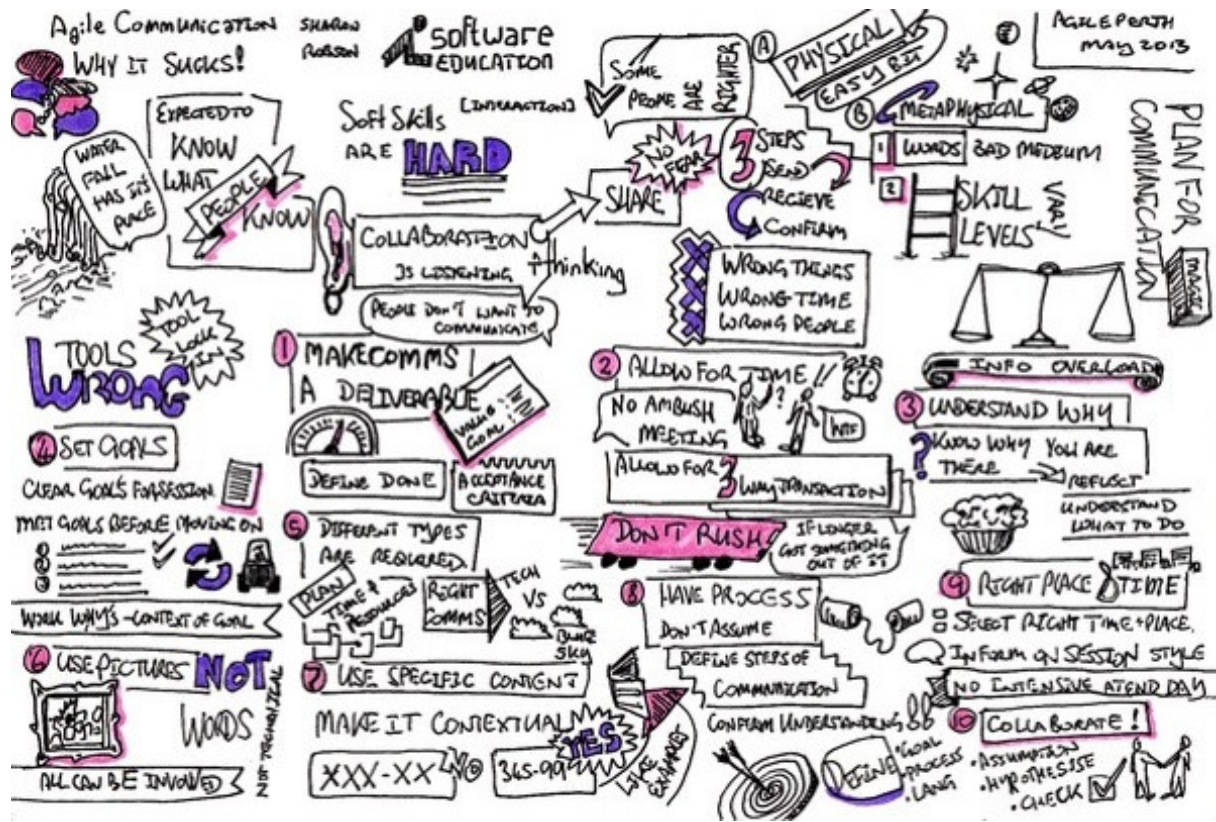 Agile Communication
WHY IT SUCKS!
SHARON
ROBSON
software
EDUCATION
AGILE PERTH
MAY 2013
WATER
FALL
HAS IT'S
PLACE
EXPECTED TO
KNOW
WHAT
PEOPLE
KNOW
Soft Skills
ARE HARD
[INTERACTION]
COLLABORATION
IS LISTENING
+thinking
PEOPLE DON'T WANT TO
COMMUNICATE
SOME
PEOPLE ARE
RIGHTER
NO
FEAR
SHARE
3 STEPS
SEND
RECIEVE
CONFIRM
WRONG THINGS
WRONG TIME
WRONG PEOPLE
A
PHYSICAL
EASY BIT
B
METAPHYSICAL
1 WORDS BAD MEDIUM
2 SKILL
LEVELS
VARY
PLAN FOR
COMMUNICATION
INFO OVERLOAD
TOOLS
WRONG
TOOL
LOCK
IN
1 MAKE COMMS
A DELIVERABLE
VALUE
GOAL
DEFINE DONE
ACCEPTANCE
CRITERIA
2 ALLOW FOR TIME!!
NO AMBUSH
MEETING
?
WTF
ALLOW FOR 3 WAY TRANSACTION
DON'T RUSH
IF LONGER
GOT SOMETHING
OUT OF IT
3 UNDERSTAND WHY
? KNOW WHY YOU ARE
THERE
REFLECT
UNDERSTAND
WHAT TO DO
4 SET GOALS
CLEAR GOALS FOR SESSION
MET GOALS BEFORE MOVING ON
WORK WHY'S - CONTEXT OF GOAL
5 DIFFERENT TYPES
ARE REQUIRED
PLAN
TIME &
RESOURCES
RIGHT
COMMS
TECH
VS
BLUE
SKY
6 USE PICTURES NOT
WORDS
NOT TECHNICAL
ALL CAN BE INVOLVED
7 USE SPECIFIC CONTENT
MAKE IT CONTEXTUAL
XXX-XX
NO
365-99
YES
LIKE
EXAMPLES
8 HAVE PROCESS
DON'T ASSUME
DEFINE STEPS OF
COMMUNICATION
CONFIRM UNDERSTANDING
DEFINE
• GOAL
• PROCESS
• LANG
9 RIGHT PLACE & TIME
SELECT RIGHT TIME + PLACE.
INFORM ON SESSION STYLE
NO INTENSIVE AT END DAY
10 COLLABORATE!
• ASSUMPTION
• HYPOTHESISE
• CHECK